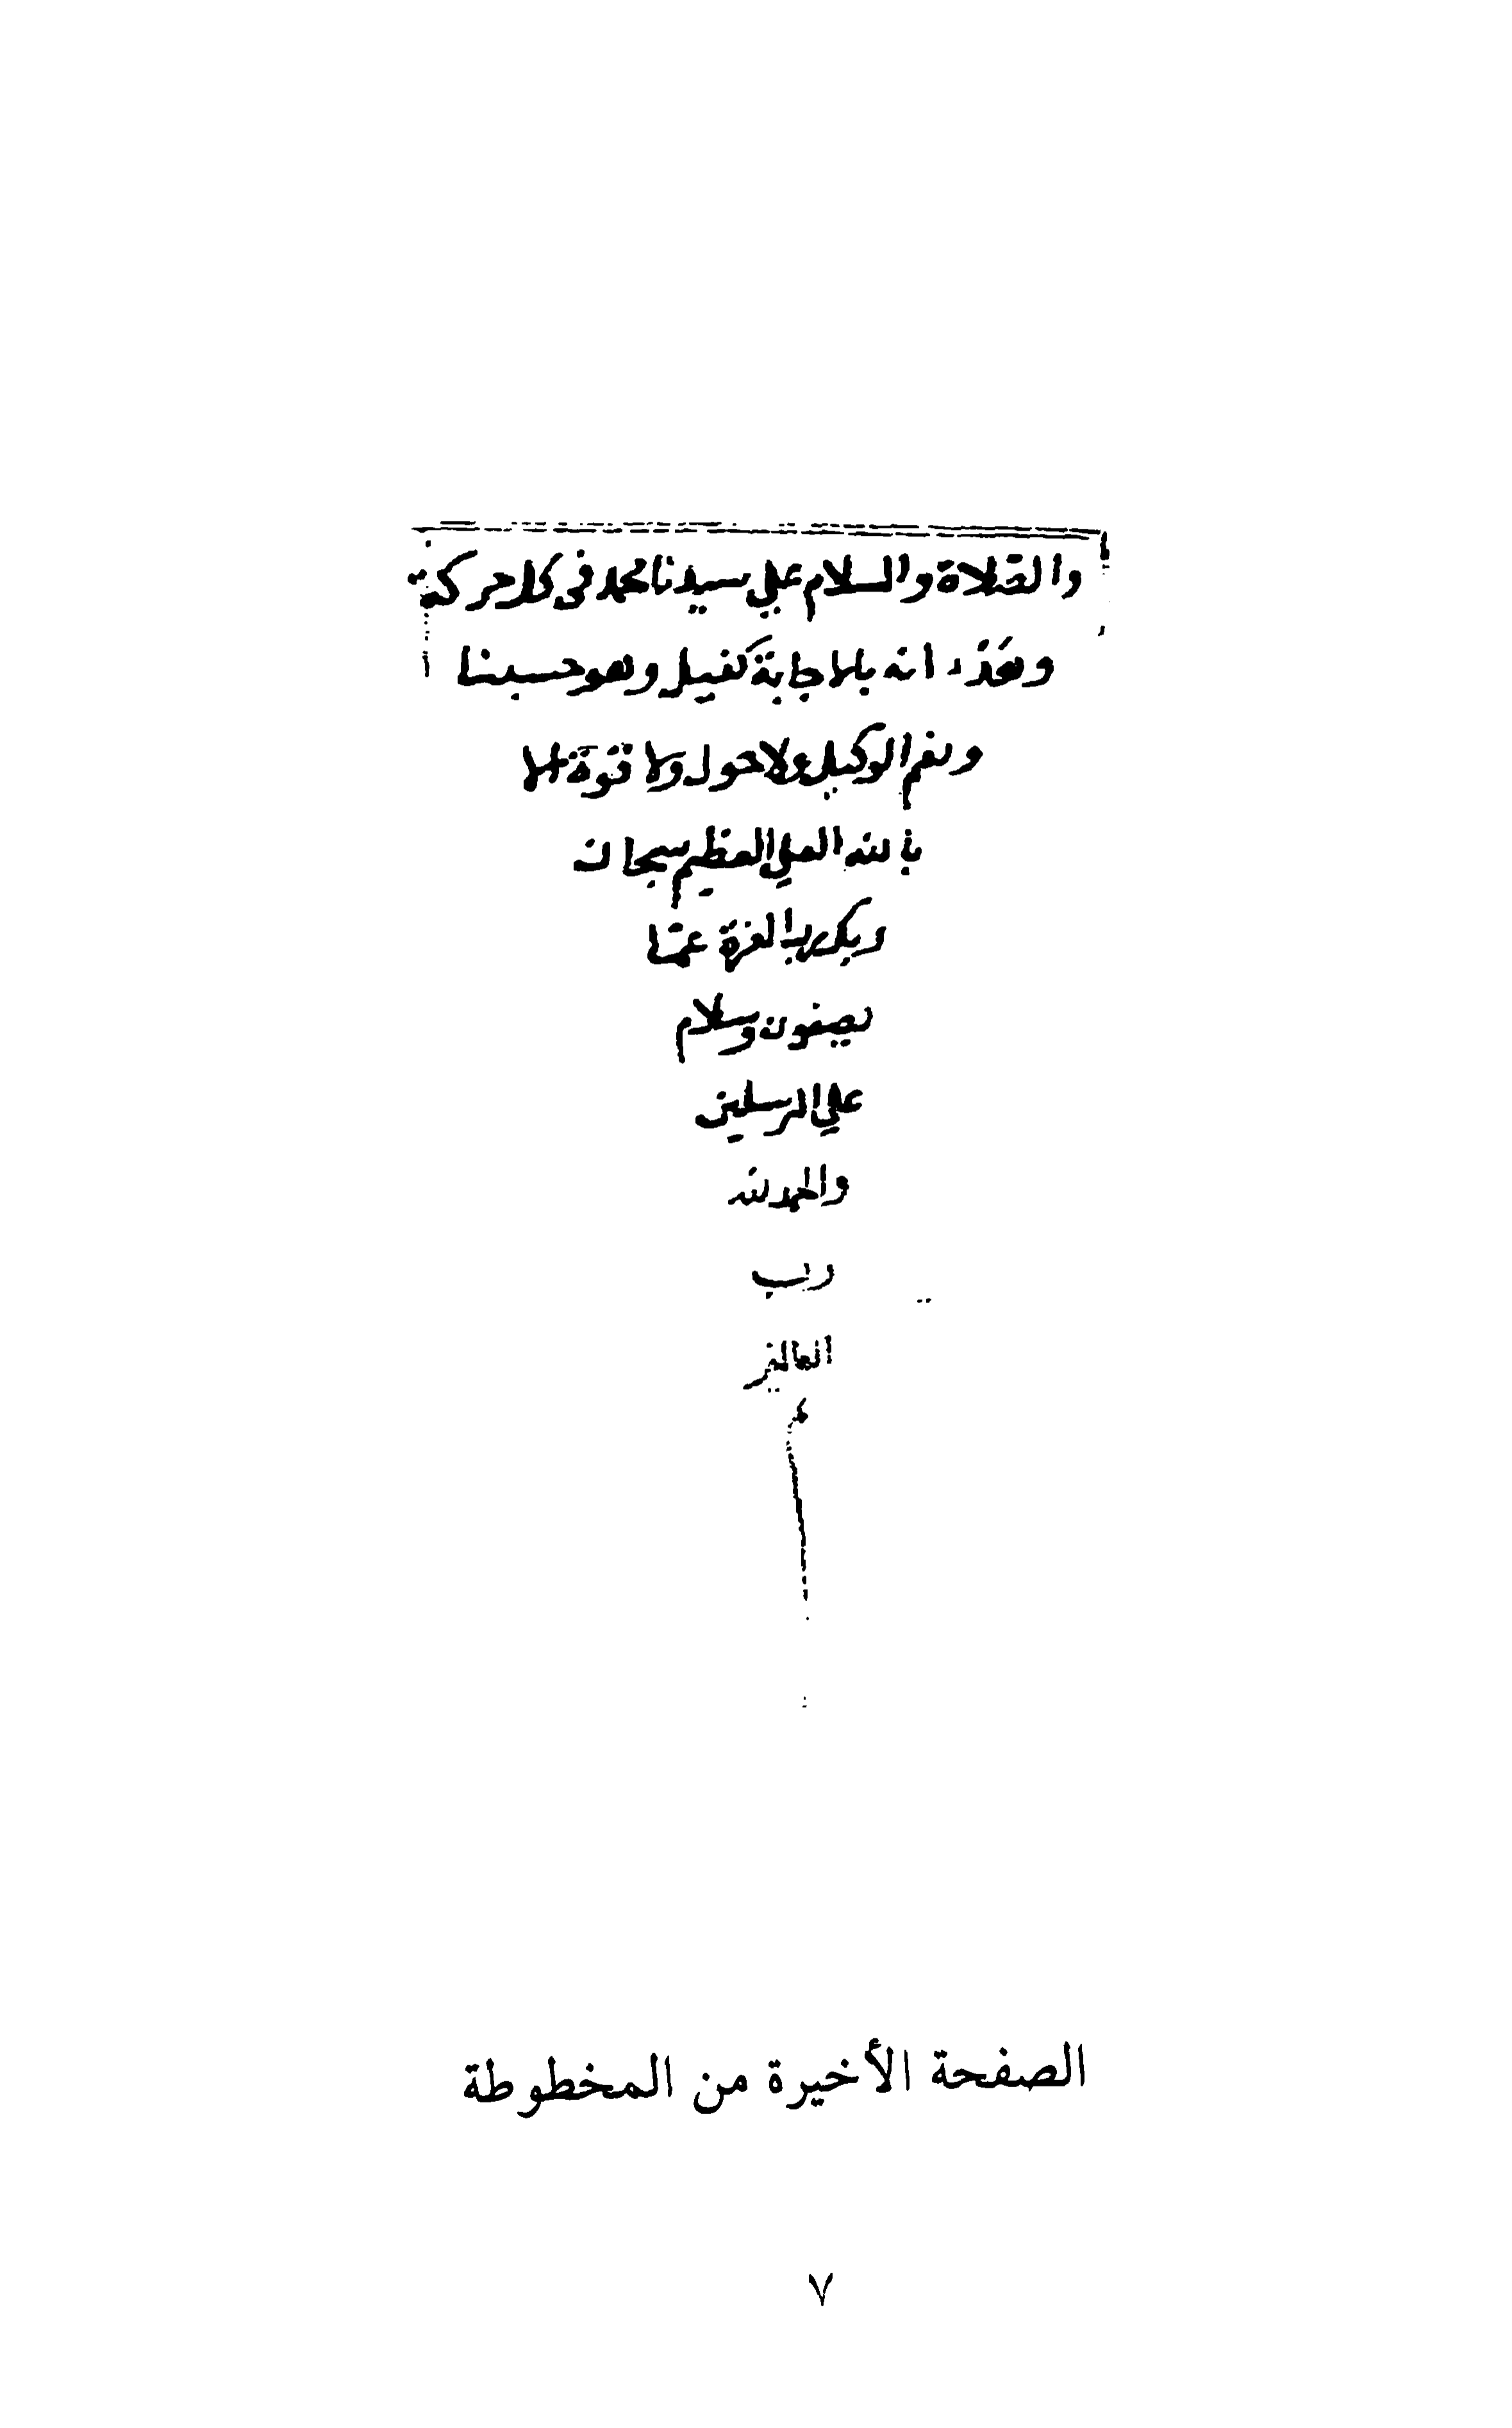 والصّلاة والسلام علي سيدنا محمد في كل حركة
انه بالاجابة كفيل وهو حسبنا
ونعم الوكيل ولا حول ولا قوّة الا
بالله العلي العظيم سبحان
ربك رب العزة عمّا
يصفون وسلام
علي المرسلين
والحمد لله
رب
العالمين
الصفحة الأخيرة من المخطوطة
٧